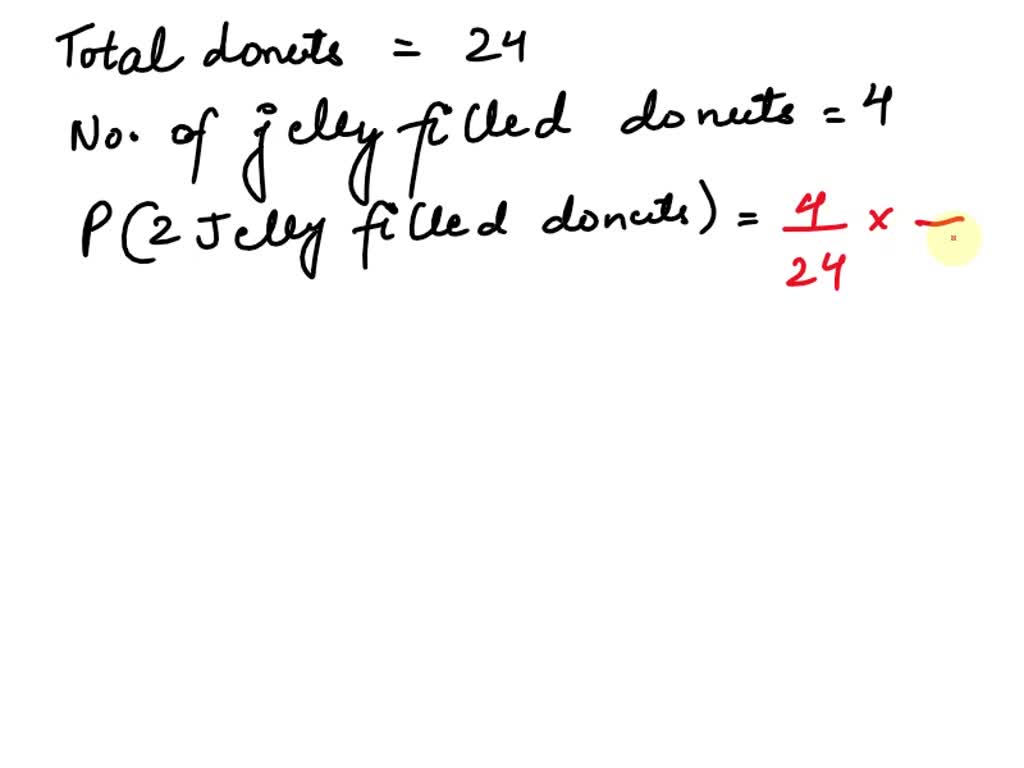 Total donuts = 24
No. of jelly filled donuts = 4
P(2 Jelly filled donuts) = 4/24 × —